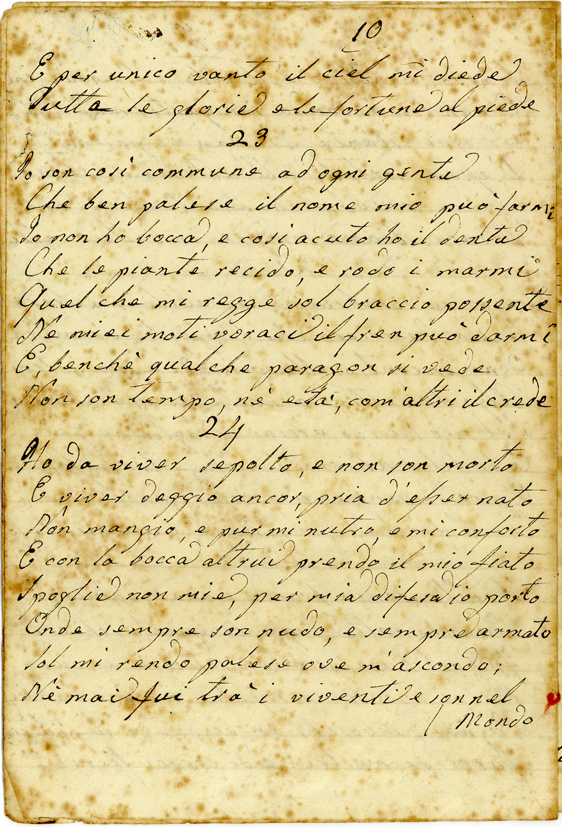 10
E per unico vanto il ciel mi diede
Tutte le glorie e le fortune al piede
23
Io son così commune ad ogni gente
Che ben palese il nome mio può farmi
Io non ho bocca, e così acuto ho il dente
Che le piante recido, e rodo i marmi
Quel che mi regge sol braccio possente
Ne miei moti voraci il fren può darmi
E, benchè qualche paragon si vede
Non son tempo, nè età, com'altri il crede
24
Ho da viver sepolto, e non son morto
E viver deggio ancor, pria d'esser nato
Non mangio, e pur mi nutro, e mi conforto
E con la bocca altrui prendo il mio fiato
Spoglie non mie, per mia difesa io porto
Onde sempre son nudo, e sempre armato
Sol mi rendo palese ove m'ascondo;
Nè mai fui trà i viventi e son nel
Mondo